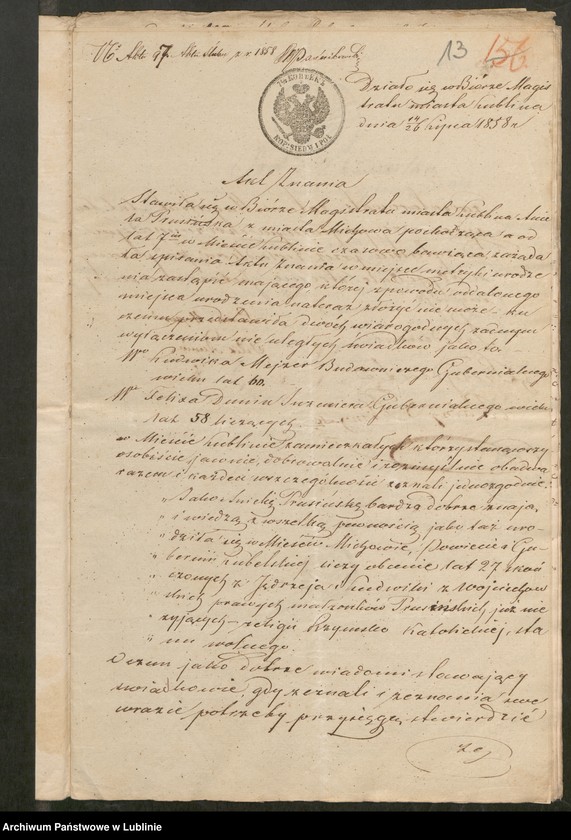 Nr Aktu 97 Akta ślubu z r 1858
13
156
KOP: SIEDM I POŁ
Działo się w Biórze Magis
tratu miasta Lublina
dnia 14/26 Lipca 1858 r
Akt Znania
Stawiła się w Biórze Magistratu miasta Lublina Anie
la Prusińska z miasta Michowa pochodząca a od
lat 7miu w Mieście Lublinie czasowo bawiąca zażąda
ła spisania Aktu Znania w miejsce metryki urodze
nia zastąpić mającego której z powodu oddalonego
miejsca urodzenia natenczas złożyć nie może - ku
czemu przedstawiła dwóch wiarogodnych żadnym
wyłączeniom nie uległych świadków jako to.
Wgo Ludwika Mejzer Budowniczego Gubernialnego
wieku lat 60.
Wgo Felixa Dunin Inżeniera Gubernialnego wieku
lat 58 liczących
w Mieście Lublinie zamieszkałych którzy stanąwszy
osobiście, jawnie, dobrowolnie i rozmyślnie obadwa
razem i każden w szczególności zeznali jednozgodnie:
„Jako Anielę Prusińską bardzo dobrze znają,
„ i wiedzą z wszelką pewnością jako taż uro-
„ dziła się w Mieście Michowie, Powiecie i Gu-
„ bernii Lubelskiej liczy obecnie lat 27 skoń
„ czonych z Jędrzeja i Ludwiki z Wojciechow
„ skich prawych małżonków Prusińskich już nie
„ żyjących - religii Rzymsko Katolickiej, sta
„ nu wolnego.
O czem jako dobrze wiadomi stawający
świadkowie, gdy zeznali i zeznania swe
w razie potrzeby przysięgą stwierdzić
Archiwum Państwowe w Lublinie